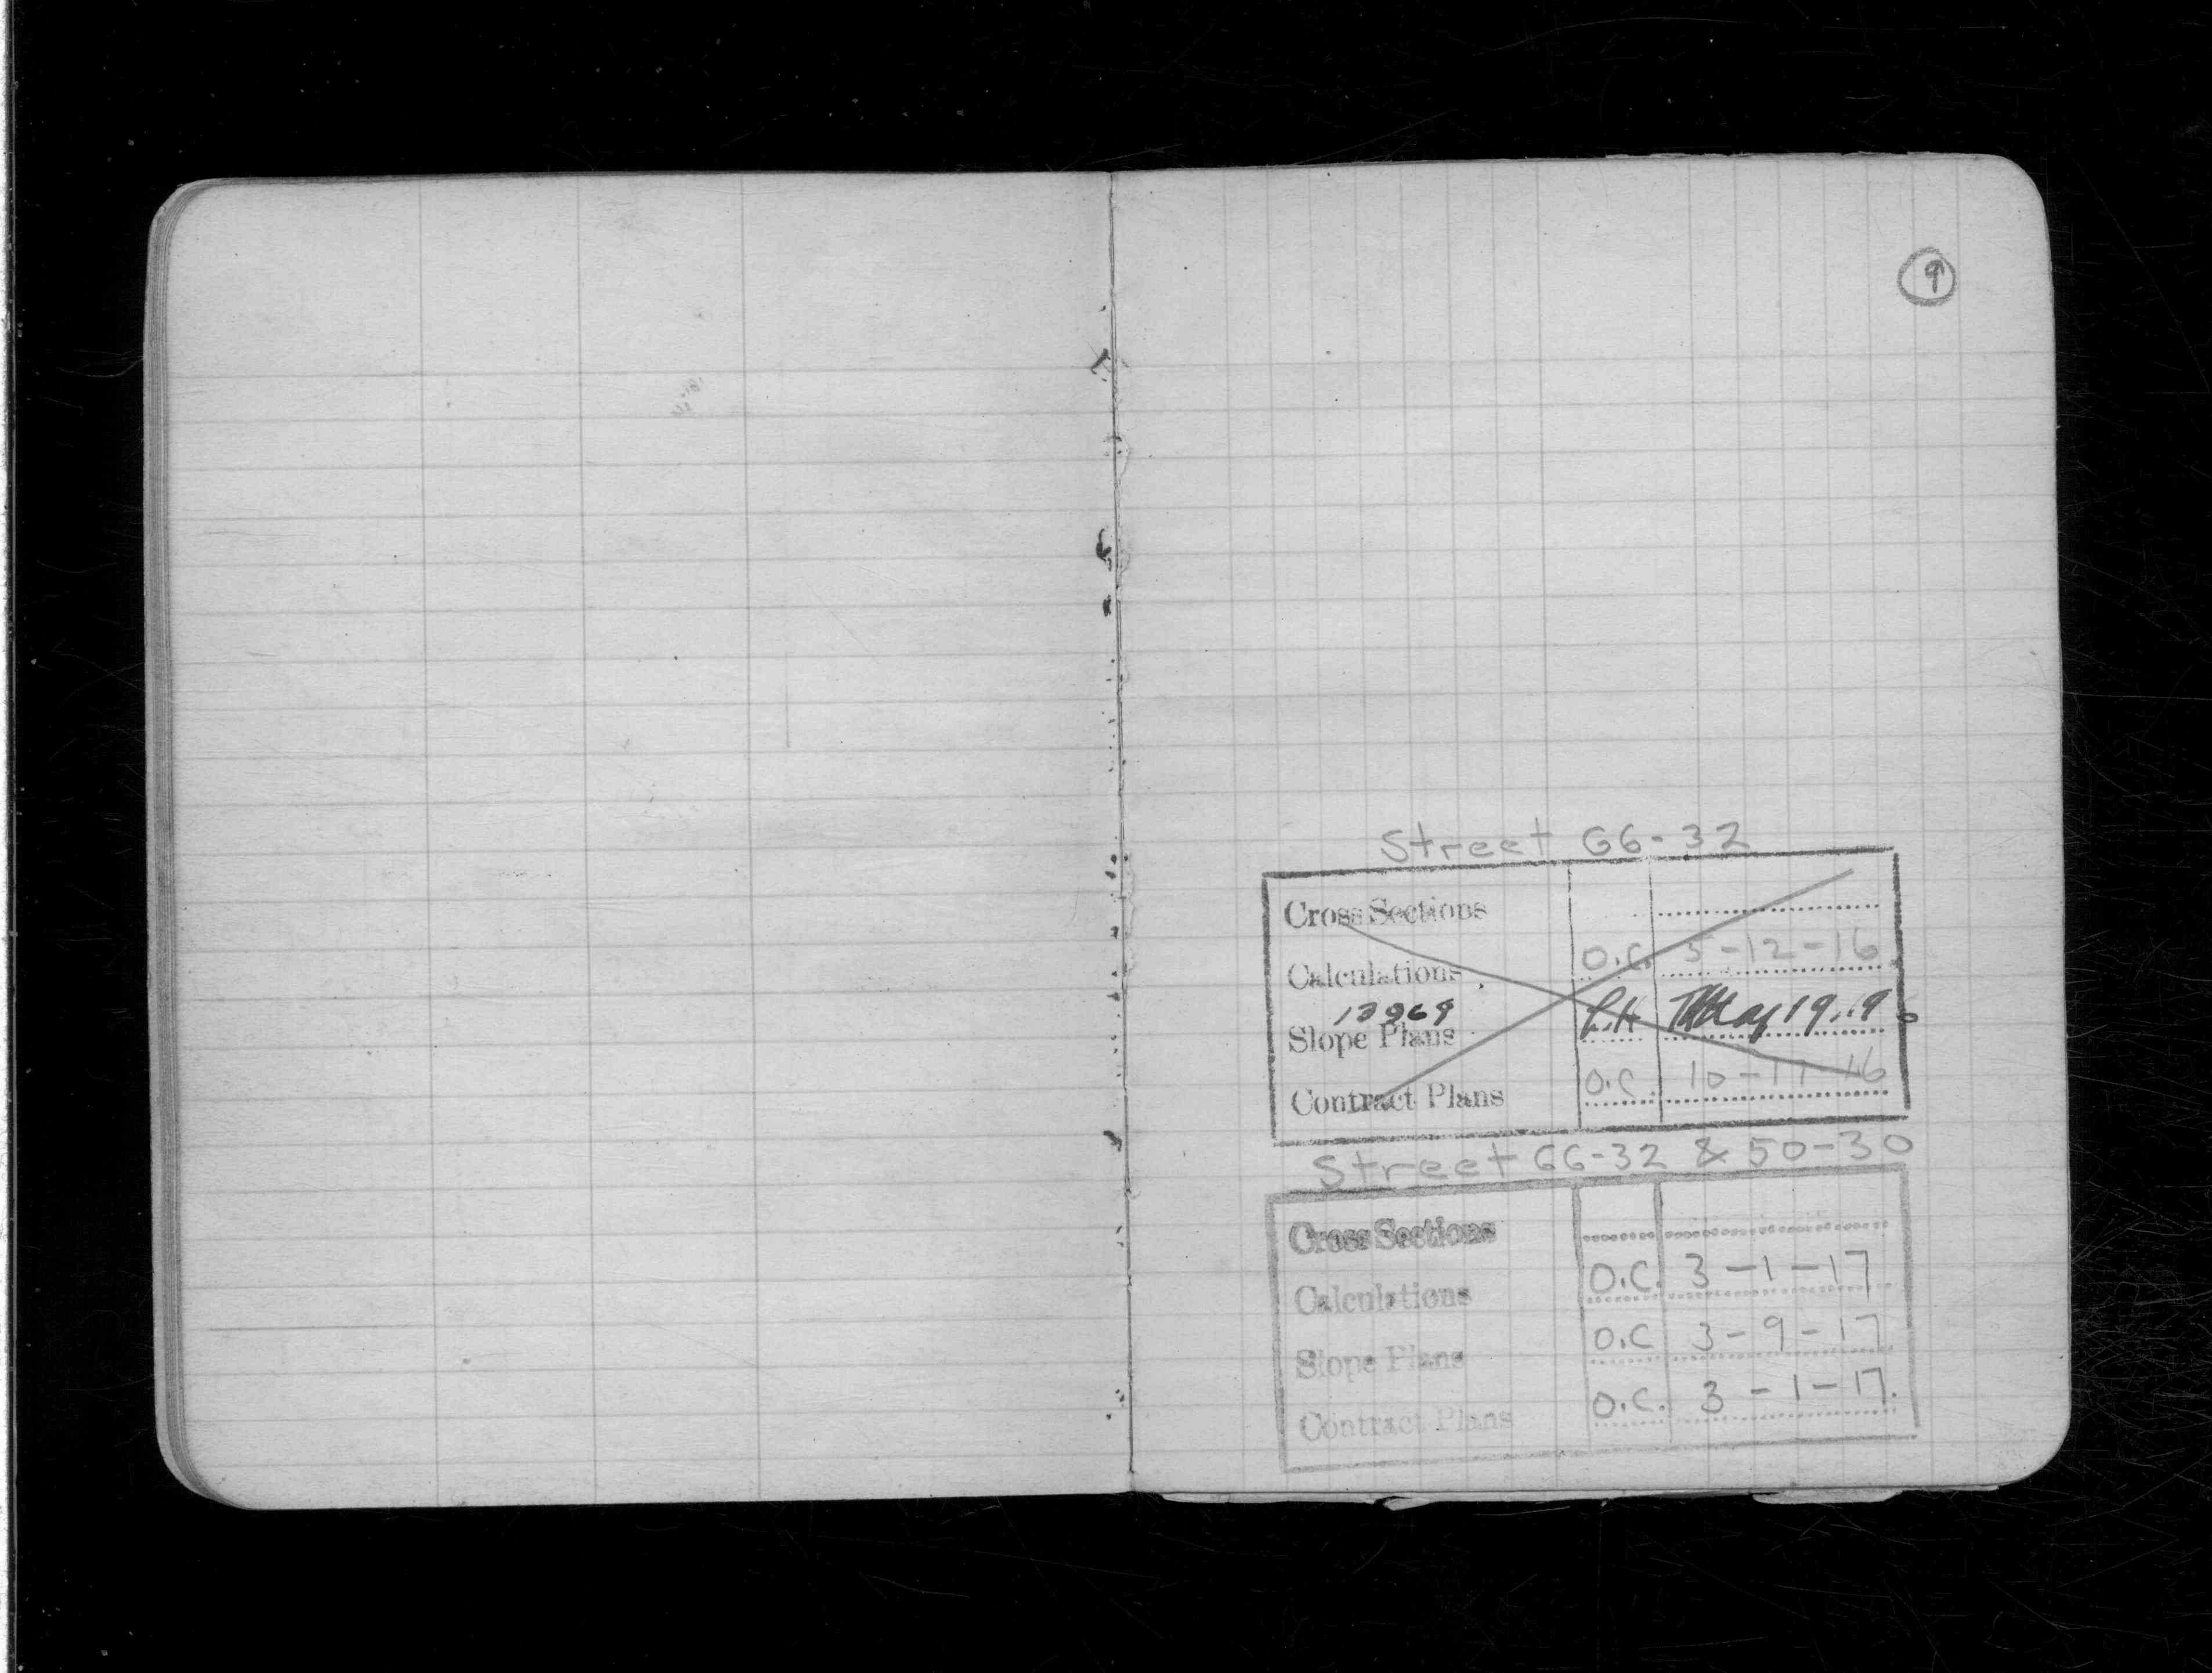 9
Street 66-32
Cross Sections
Calculations O.C. 5-12-16
13969
Slope Plans May 19.19
Contract Plans O.C. 10-11-16
Street 66-32 & 50-30
Cross Sections
Calculations O.C. 3-1-17
Slope Plans O.C 3-9-17
Contract Plans O.C. 3-1-17.